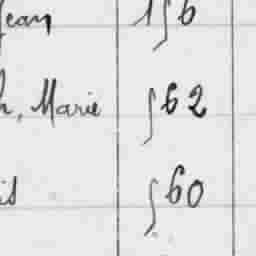 Jean 156
h, Marie 562
is 560